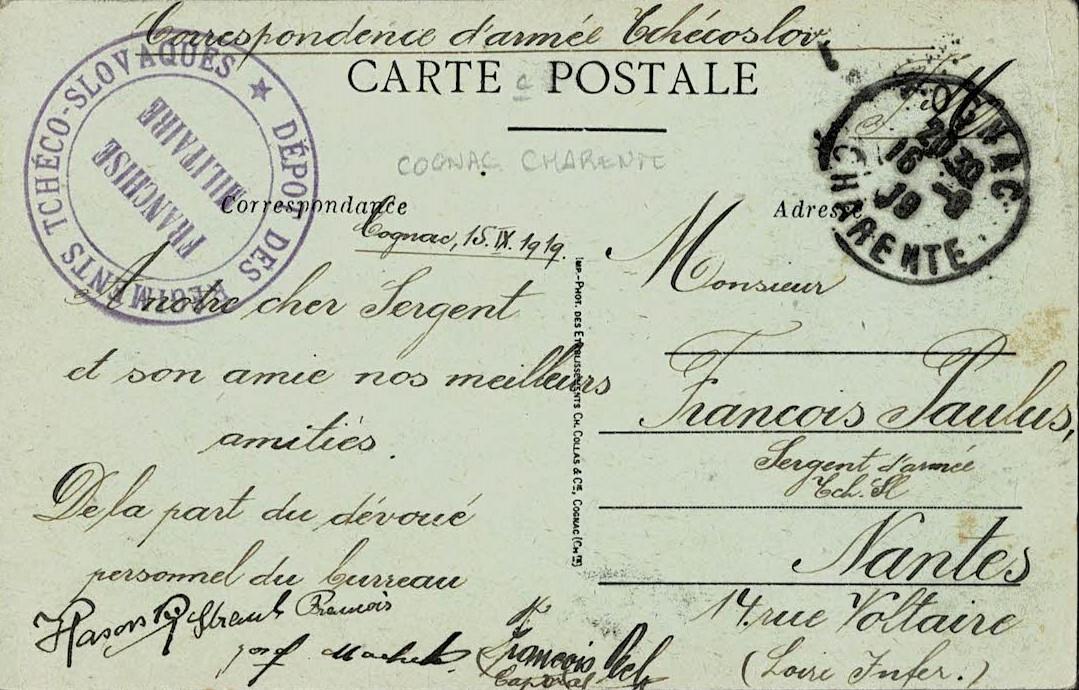 Correspondence d'armée Tchécoslov.
CARTE POSTALE
DÉPOT DES RÉGIMENTS TCHÉCO-SLOVAQUES ★
FRANCHISE
MILITAIRE
COGNAC CHARENTE
COGNAC
20 30
16 -9
19
CHARENTE
Correspondance
Adresse
Cognac, 15.IX.1919.
A notre cher Sergent
et son amie nos meilleurs
amitiés.
De la part du dévoué
personnel du burreau
François
Caporal
IMP.-PHOT. DES ETABLISSEMENTS CH. COLLAS & Cie, COGNAC (Chte)
Monsieur
Francois Paulus,
Sergent d'armée
Tch. Sl
Nantes
14. rue Voltaire
(Loire Infer.)